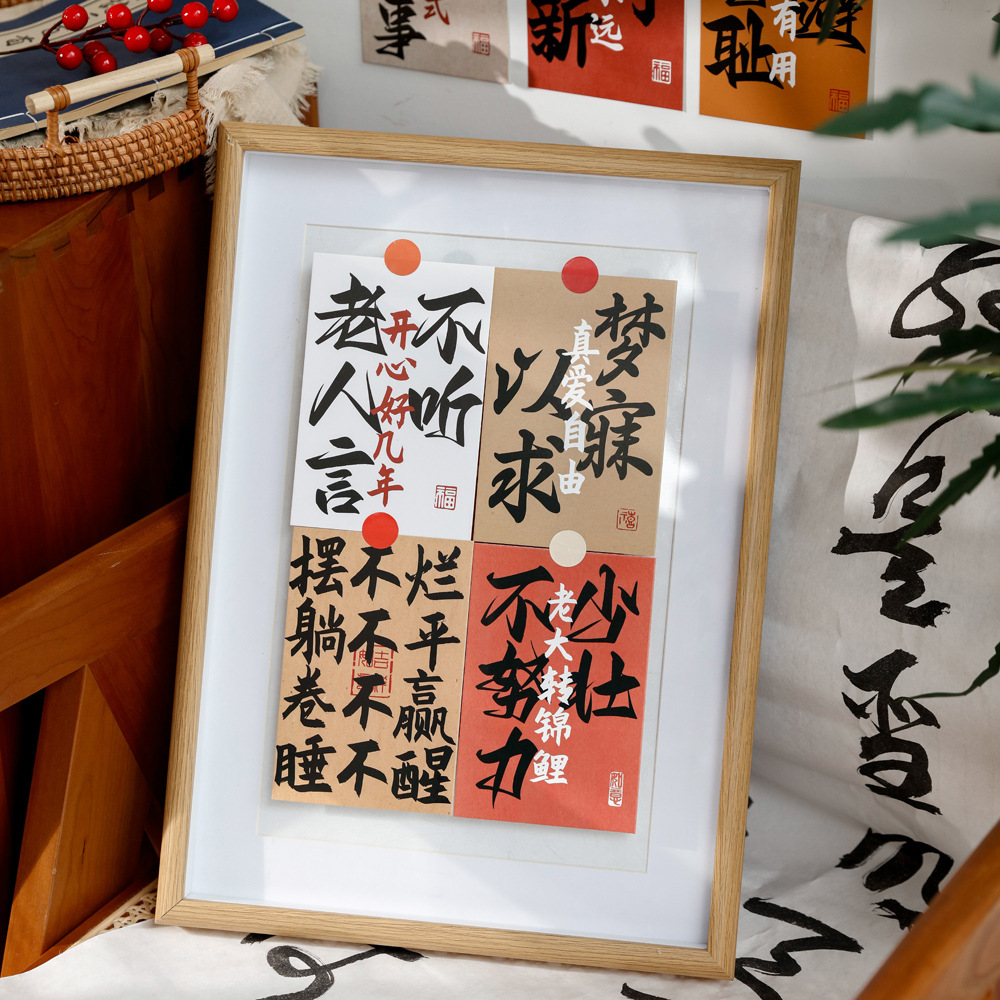 事
式
福
新
远
福
耻
有用
福
不听
老人言
开心好几年
福
梦寐
以求
真爱自由
禧
烂平赢醒
不不不不
摆躺卷睡
少壮
不努力
老大转锦鲤